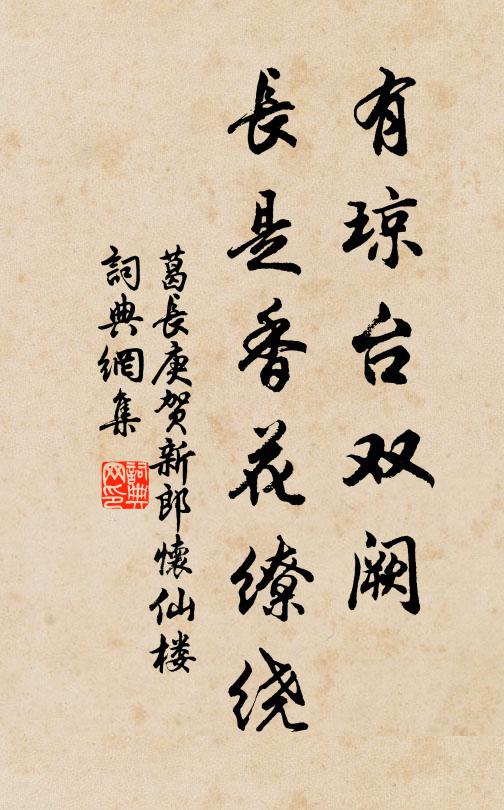 有琼台双阙
長是香花缭绕
葛長庚贺新郎懷仙楼
詞典網集
詞典
网印